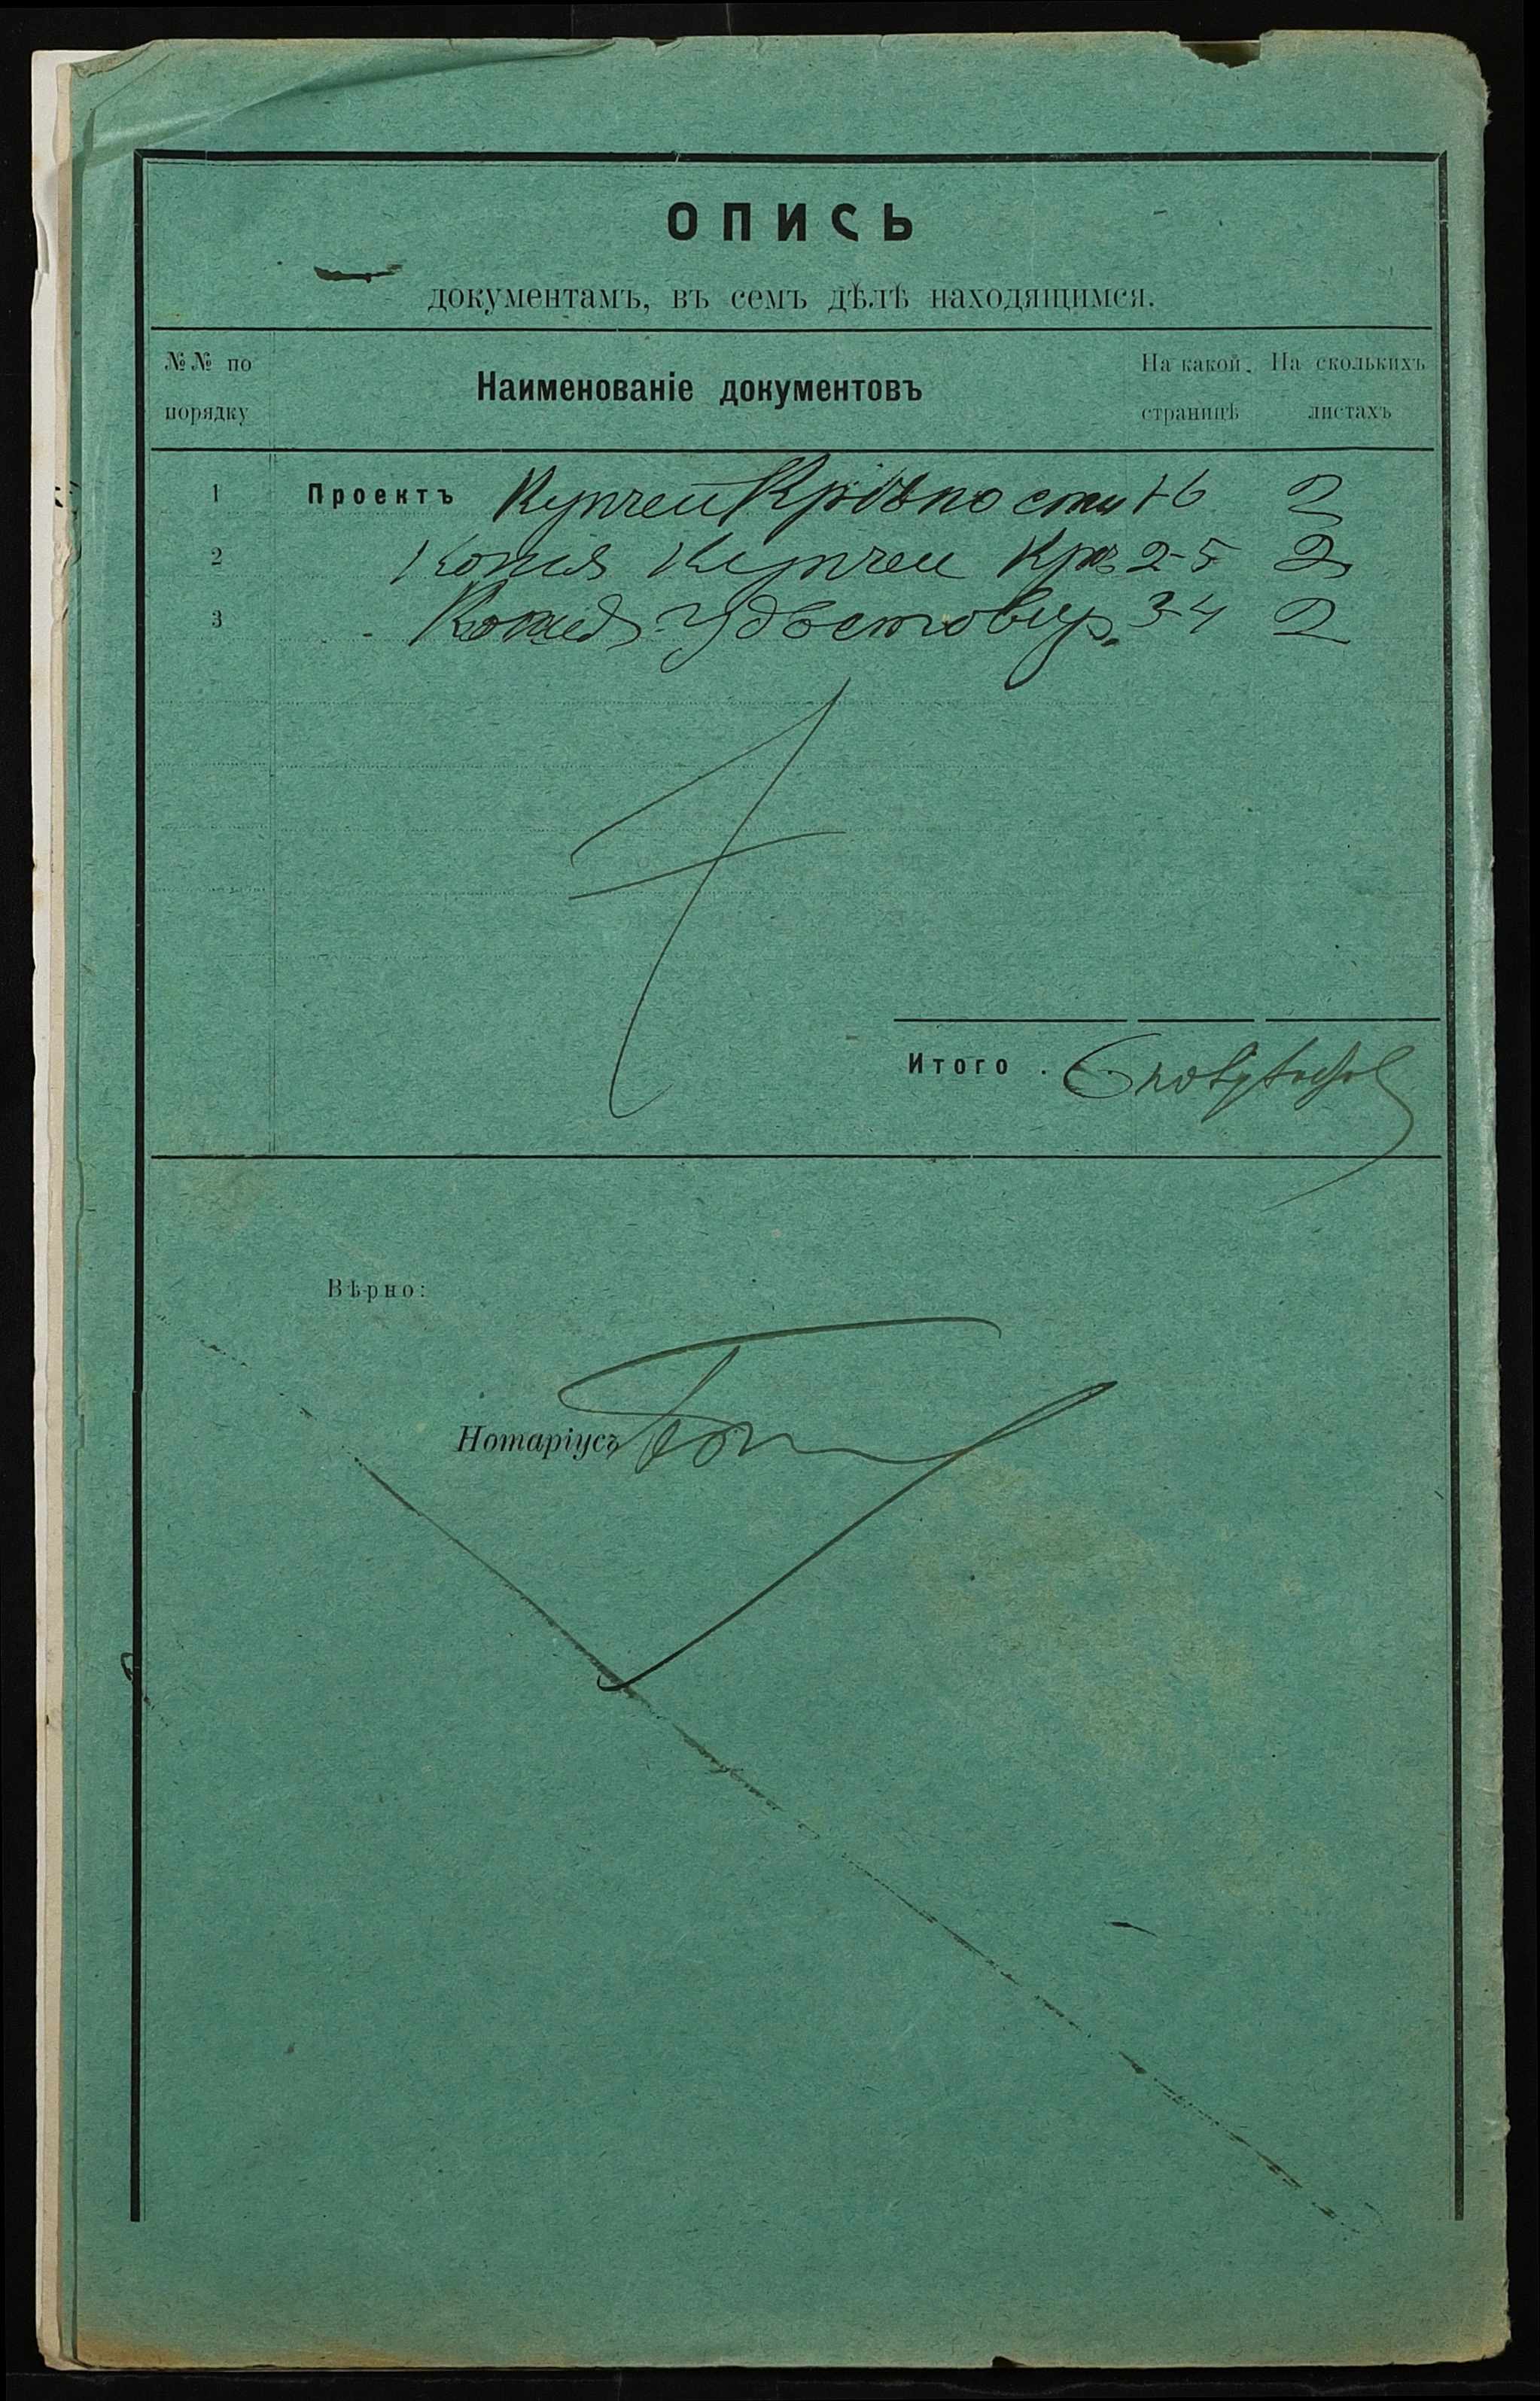 ОПИСЬ
документамъ, въ семъ дѣлѣ находящимся.
№№ по порядку
Наименованіе документовъ
На какой страницѣ
На сколькихъ листахъ
1 Проектъ Купчей Крѣпости 1-6 2
2 Копія Купчей Крѣ 2-5 2
3 Копія Удостовѣр. 3-4 2
Итого . 6
Вѣрно:
Нотаріусъ